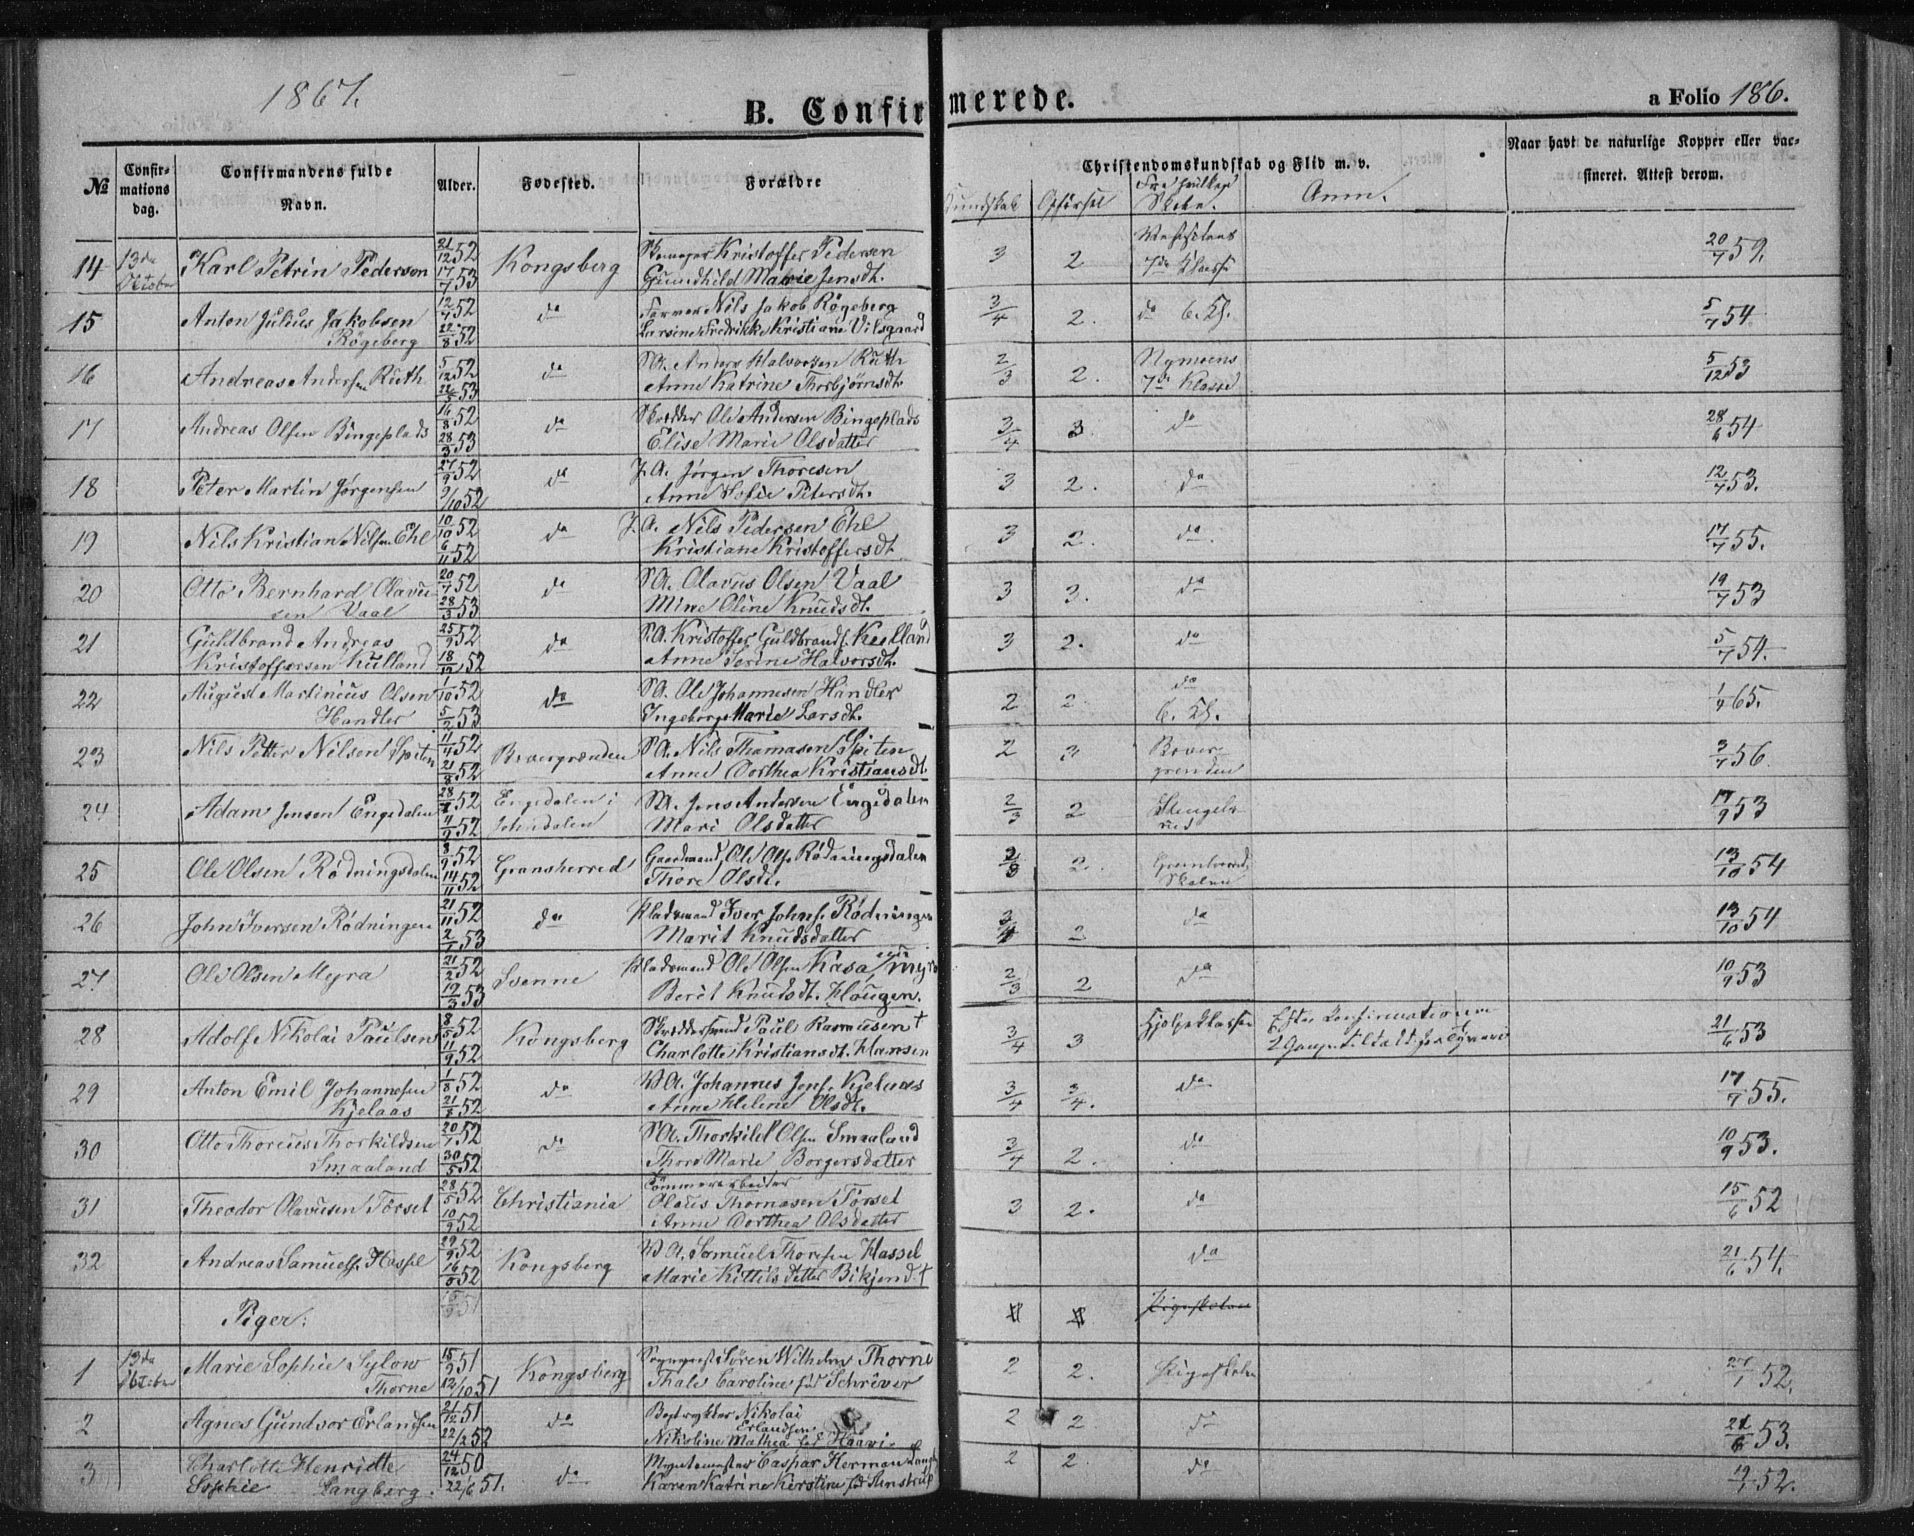 1867.
B. Confirmerede.
a Folio 186.
No Confirmations dag. Confirmandens fulde Navn. Alder. Fødested. Forældre Kundskab Opførsel Skole. Christendomskundskab og Flid m. v. Anm. Naar havt de naturlige Kopper eller vaccineret. Attest derom.
14 13de October Karl Petrin Pederson 21/12 52 17/7 53 Kongsberg Kristoffer Pedersen 3 2 7de Klasse 20/7 59.
Gunnhild Marie Jensdt.
15 Anton Julius Jakobsen Rögeberg 12/7 52 22/8 52 do Farver Nils Jakob Rögeberg 3/4 2. do 6. Kl. 5/7 54
Larsine Fredrikke Kristiane Vilsgaard
16 Andreas Andersen Ruth 5/12 52 22/5 53 do Anders Halvorsen Ruth 2/3 2. Nymoens 7de Klasse 5/12 53
Anne Katrine Thorbjørnsdt.
17 Andreas Olsen Bingeplads 16/8 52 28/3 53 do Skrædder Ole Andersen Bingeplads 3/4 3. do 28/6 54
Elise Marie Olsdatter
18 Peter Martin Jørgensen 27/9 52 9/10 52 do J. A. Jørgen Thoresen 3 2. do 12/7 53.
Anne Sofie Petersdt.
19 Nils Kristian Nilsen Ehl 10/10 52 6/11 52 do J. A. Nils Pedersen Ehl 3 2. do. 17/7 55.
Kristiane Kristoffersdt
20 Otto Bernhard Olavusen Vaal 20/7 52 28/3 53 do S. A. Olavus Olsen Vaal 3 3. do 19/7 53
Mine Oline Knudsdt.
21 Guldbrand Andreas Kristoffersen Kulland 25/9 52 do S. A. Kristoffer Guldbrands. 3 2. do 5/7 54.
Anne Sorine Halvorsdt.
22 August Martinius Olsen Handler 1/10 52 do S. A. Ole Johannesen Handler 2 2. do 6. Kl. 1/4 65.
Ingeborg Marie Larsdt.
23 Nils Petter Nilsen Spiten 11/4 52 21/8 52 Bævergrænden S. A. Nils Thomasen Spiten 2 3 Bævergrenden 3/7 56.
Anne Dorthea Kristiansdt.
24 Adam Jensen Engedalen Engedalen i Johndalen Jens Andersen Engedalen 2/3 2 17/9 53
Mari Olsdatter
25 Ole Olsen Rødningsdalen 8/9 52 14/11 52 Gransherred Gaardmand Ole Ols. Rødningsdalen 2/3 2. 13/10 54
Thore Olsdt.
26 John Iversen Rødningen 21/11 52 2/1 53 do Pladsmand Iver Johns. Rødningen 2 do 13/10 54
Marit Knudsdatter
27 Ole Olsen Myra 21/2 52 19/3 53 Svenne Pladsmand Ole Olsen Kasa 2/3 2 do 10/9 53
Berit Knudsdt. Haugen.
28 Adolf Nikolai Paulsen 8/5 52 11/9 52 Kongsberg Skræddersvend Paul Rasmusen † 3/4 3 Hjelpeklassen Efter Confirmationen 21/6 53
Charlotte Kristiansdt. Hansen
29 Anton Emil Johannesen Kjelaas 1/8 52 21/8 52 do Johannes Jens. Kjelaas 3/4 3/4. do 17/7 55.
Anne Helene Olsdt.
30 Otto Thoreus Thorkildsen Smaaland 20/1 52 30/5 52 do S. A. Thorkild Olsen Smaaland 3/4 2. do 10/9 53.
Thore Marie Borgersdatter
31 Theodor Olavusen Torset 28/5 52 10/9 52 Christiania Tømmerarbeider Olaus Thomasen Torset 3 2. do 15/6 52
Anne Dorthea Olsdatter
32 Andreas Samuels. Hassel 29/9 52 Kongsberg Samuel Thoresen Hassel do 21/6 54.
Marie Kittilsdatter †
Piger:
1 13de October Marie Sophie Sylow Thorne 15/9 51 12/10 51 Kongsberg Sogneprest Søren Wilhelm Thorne 2 2. Pigeskolen 27/1 52.
Thale Caroline fød Schriver
2 Agnes Gundvor Erlandsen 21/12 51 22/2 52 do Bogtrykker Nikolai Erlandsen 2 2. do 53.
Nikoline Mathea fød
3 Charlotte Henriette Sophie Langberg. 24/12 50 22/6 51. do Myntmester Caspar Herman 2 2 do 52.
Karen Katrine Kirstine fød